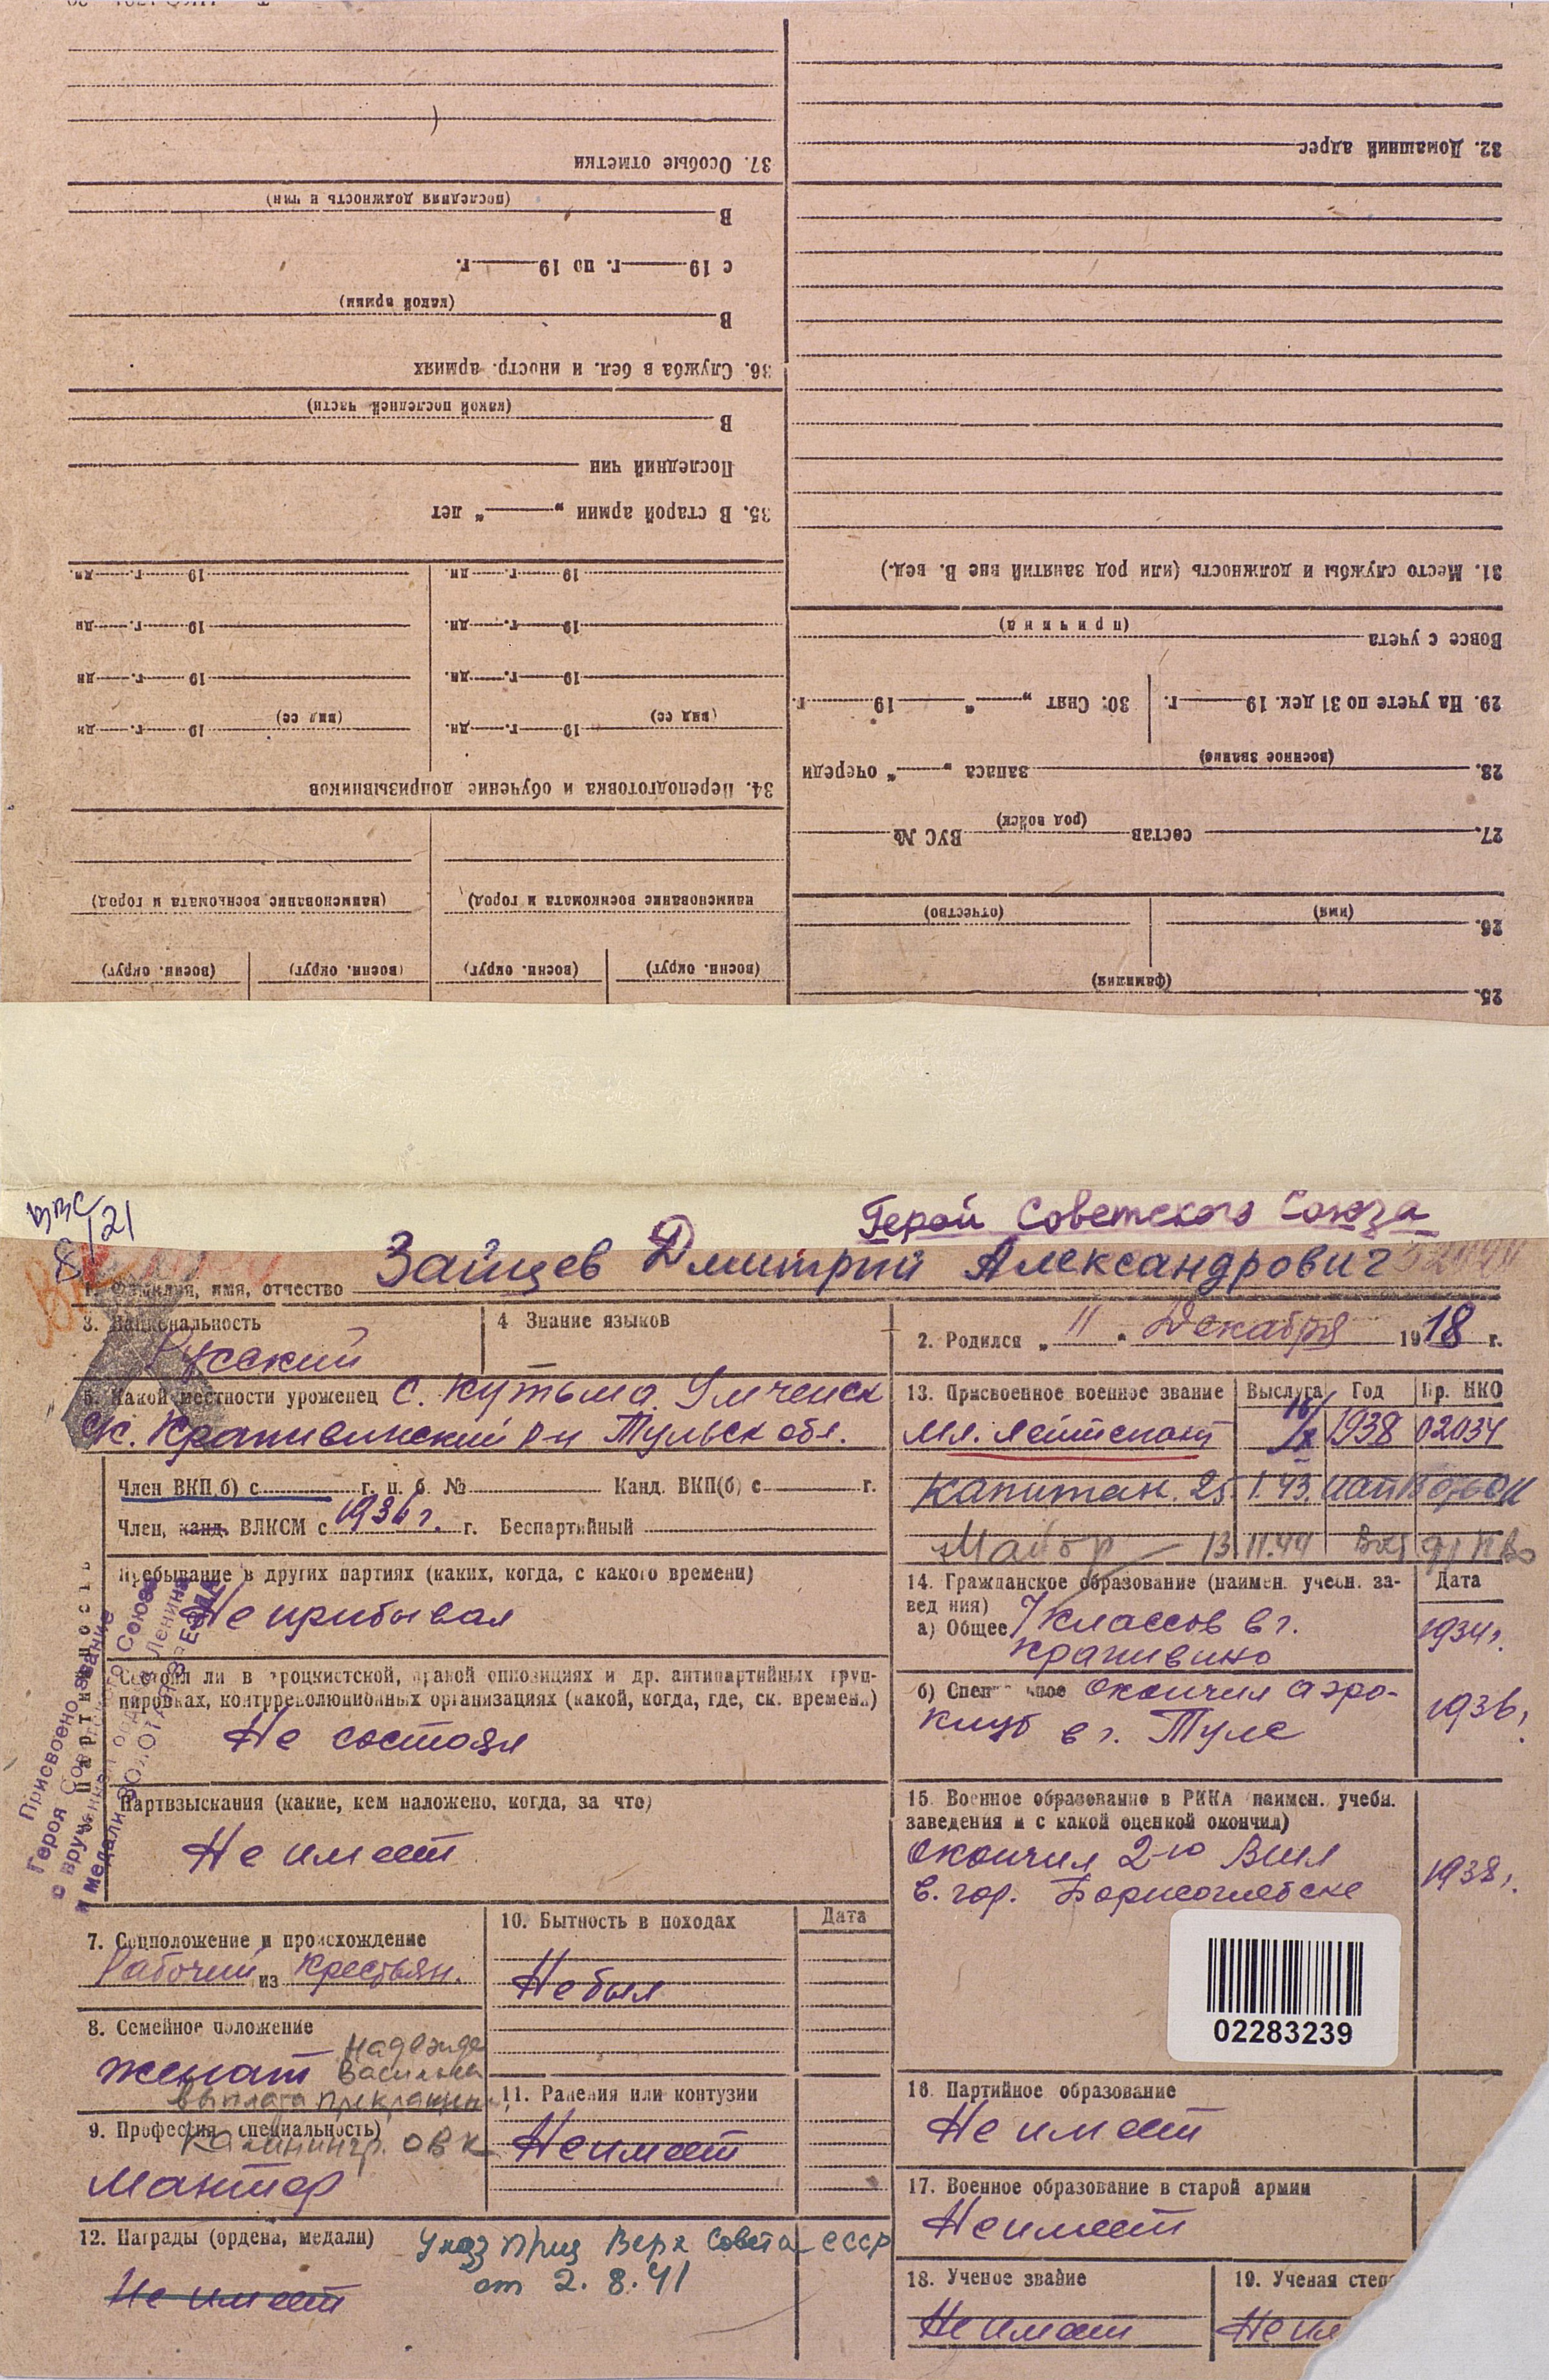 37. Особые отметки
(последняя должность и чин)
В
с 19 г. по 19 г.
(какой армии)
В
36. Служба в бел. и иностр. армиях
(какой последней части)
В
Последний чин
35. В старой армии „ “ лет
19 г. дн. 19 г. дн.
19 г. дн. 19 г. дн
19 г. дн. 19 г. дн
(вид сс) 19 г. дн. (вид сс) 19 г. дн
34. Переподготовка и обучение допризывников
наименование военкомата и город) (наименование военкомата и город)
(воени. округ) (воени. округ) (воени. округ) (воени. округ)
32. Домашний адрес
31. Место службы и должность (или род занятий вне В. вед.)
(причина)
Вовсе с учета
29. На учете по 31 дек. 19 г. 30. Снят „ “ 19 г.
(военное звание)
28. запаса „ “ очереди
(род войск)
27. состав ВУС №
(имя) (отчество)
26.
(фамилия)
25.
ВВС
8/21
Герой Советского Союза
1. Фамилия, имя, отчество Зайцев Дмитрий Александрович
3. Национальность Русский
4 Знание языков
2. Родился „ 11 “ Декабря 1918 г.
5. Какой местности уроженец с. Кутьма Умченск
с/с. Крапивинский р-н Тульск обл.
Партийность
Член ВКП,б) с г. п. б. № Канд. ВКП(б) с г.
Член, канд. ВЛКСМ с 1936 г. г. Беспартийный
Пребывание в других партиях (каких, когда, с какого времени)
Не прибывал
Состоял ли в троцкистской, правой оппозициях и др. антипартийных груп-
пировках, контрреволюционных организациях (какой, когда, где, ск. времени)
Не состоял
Партвзыскания (какие, кем наложено, когда, за что)
Не имеет
Присвоено звание
Героя Советского Союза
с вручением ордена Ленина
и медали ЗОЛОТАЯ ЗВЕЗДА
7. Соцположение и происхождение
Рабочий из Крестьян.
8. Семейное положение
женат Надежда
Васильев
выплата прекращен
Калинингр. ОВК
9. Профессия специальность)
Мантер
10. Бытность в походах Дата
Не был
11. Ранения или контузии
Не имеет
12. Награды (ордена, медали)
Указ През Верх Совета СССР
от 2. 8. 41
Не имеет
13. Присвоенное военное звание Выслуга Год Пр. НКО
Мл. лейтенант 16/X 1938 02034
Капитан 25 1. 43.
Майор 13.11.44 ПВО
14. Гражданское образование (наимен. учебн. за-
вед ния) Дата
а) Общее 7 классов в г.
Крапивино 1934 г.
б) Специальное Окончил аэро-
клуб в г. Туле 1936 г.
15. Военное образование в РККА (наимен. учебн.
заведения и с какой оценкой окончил)
Окончил 2-ю ВШЛ
в. гор. Борисоглебске 1938 г.
02283239
16. Партийное образование
Не имеет
17. Военное образование в старой армии
Не имеет
18. Ученое звание
Не имеет
19. Ученая степ
Не им